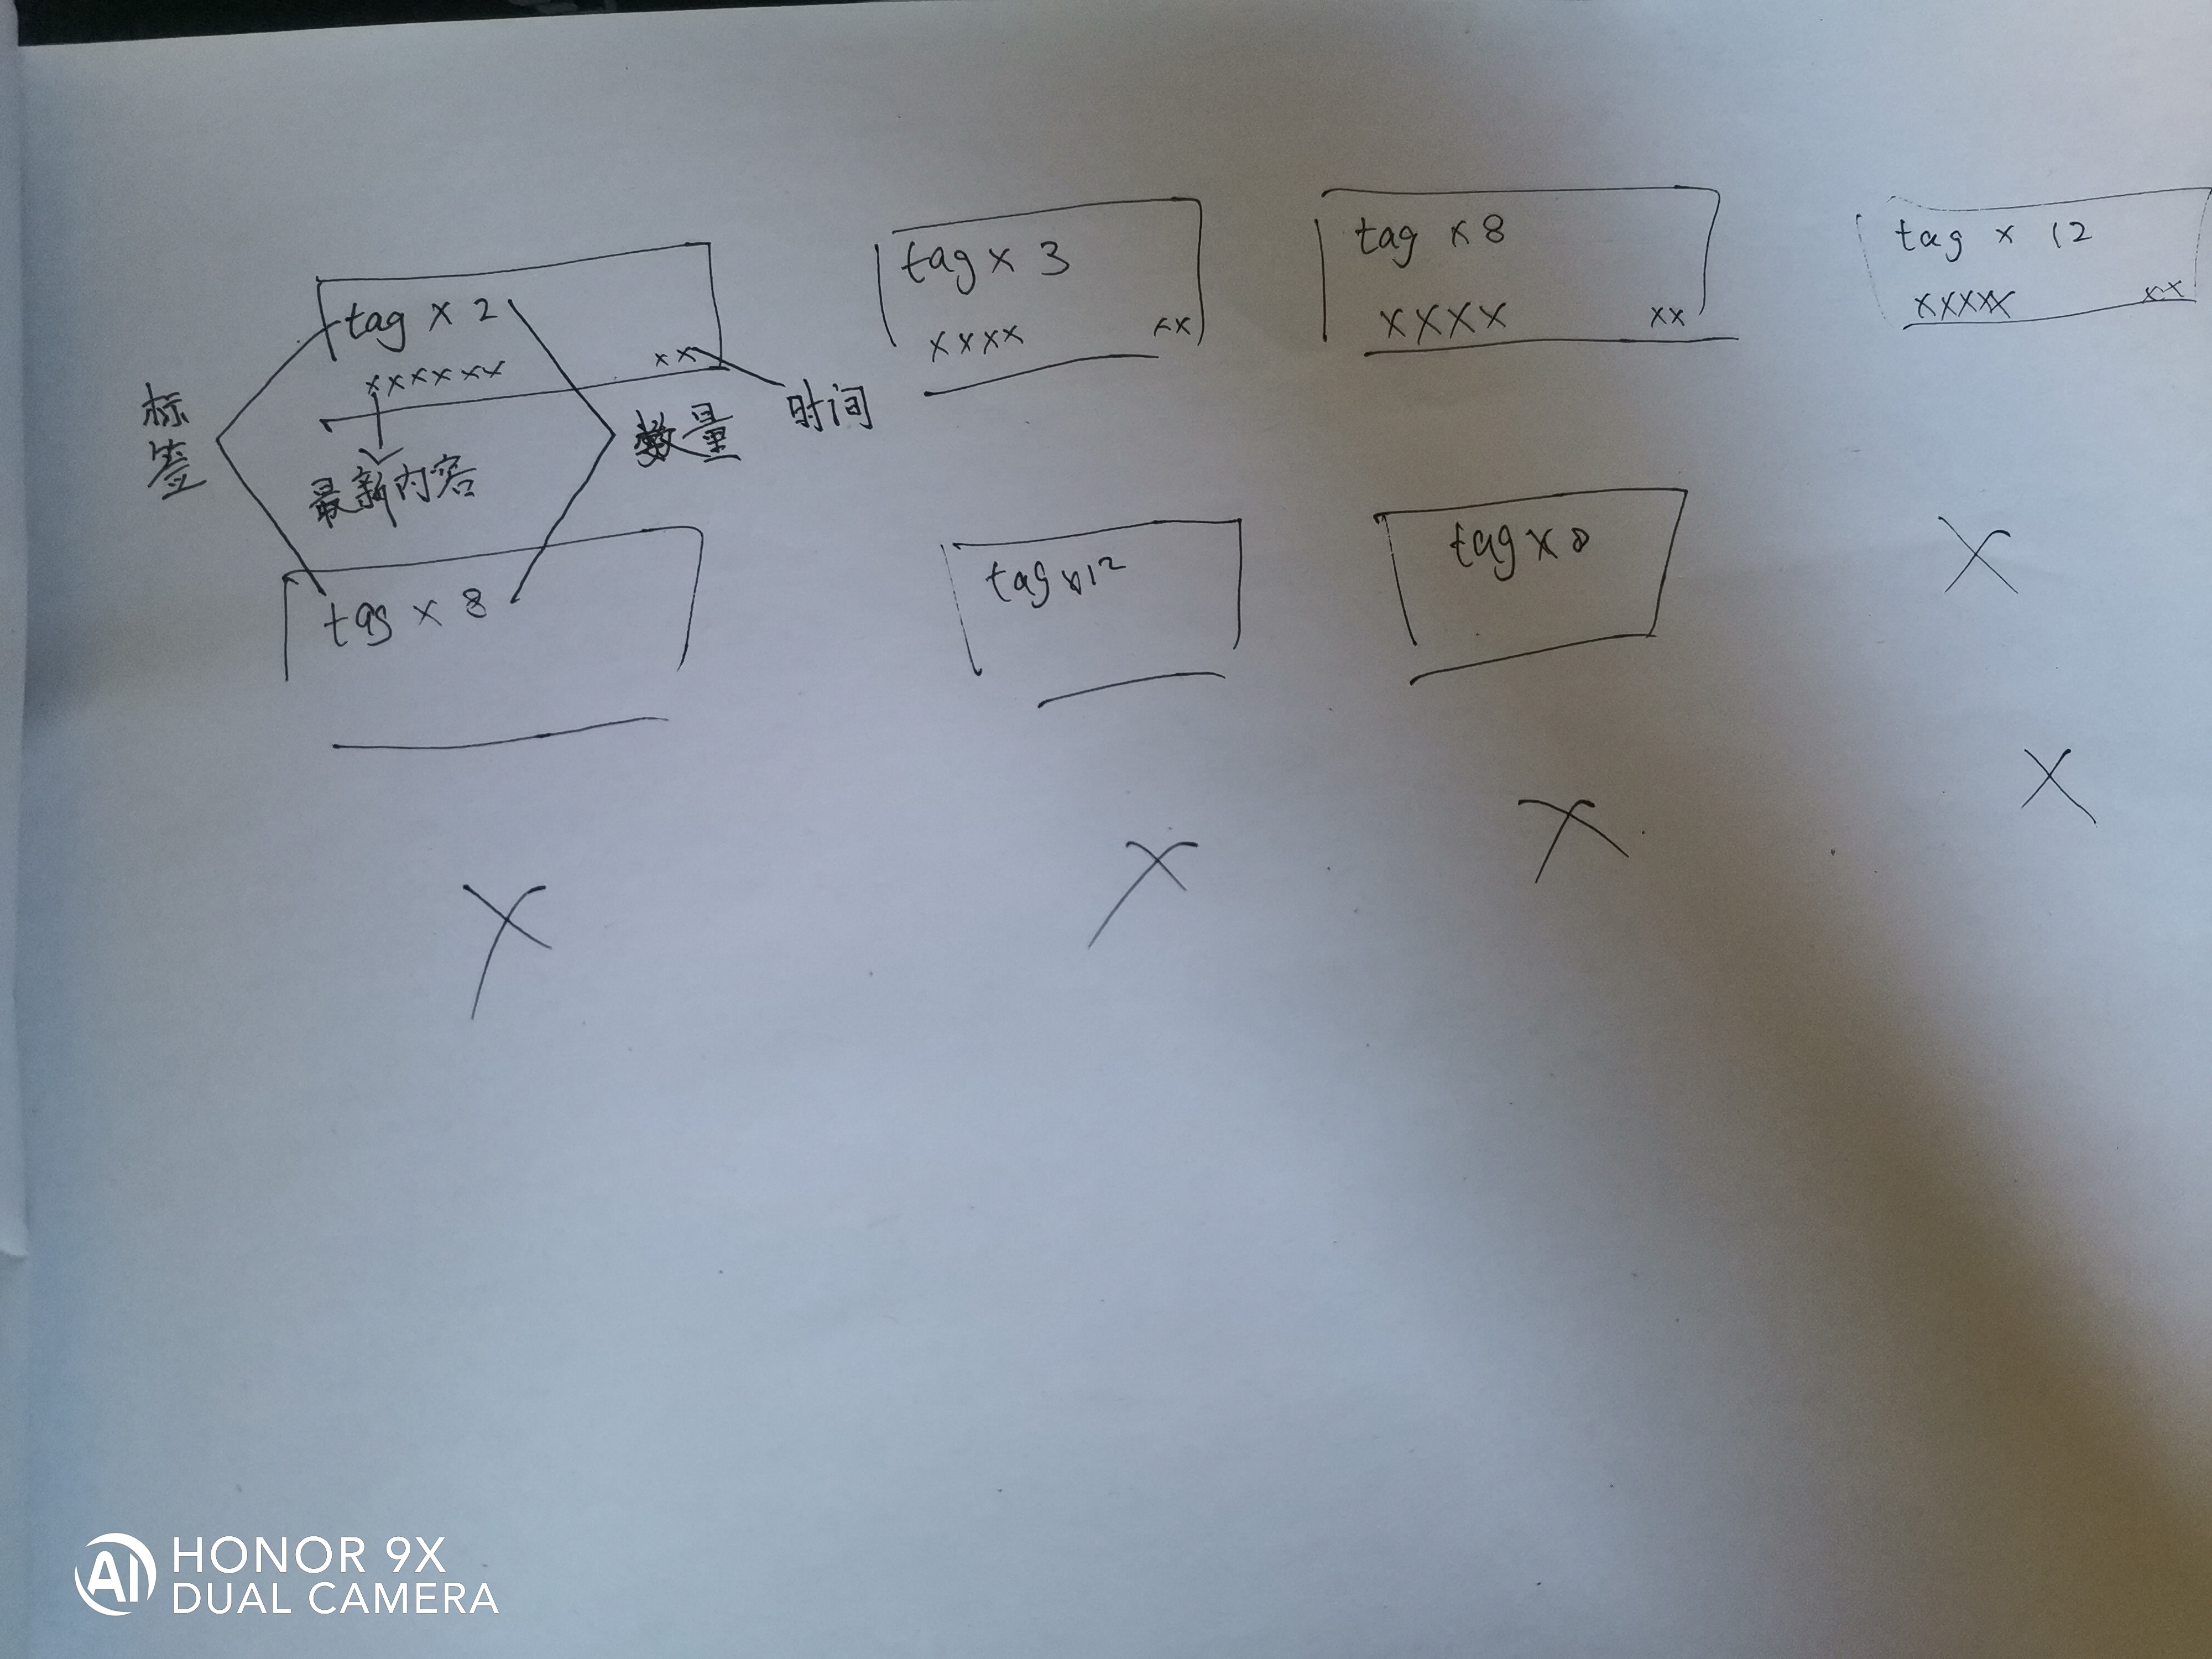 tag x 2
xxxxxx
xx
标签
最新内容
数量
时间
tag x 3
xxxx
xx
tag x 8
xxxx
xx
tag x 12
xxxxx
xx
tag x 8
tag x12
tag x 8
X
X
X
X
X
AI HONOR 9X
DUAL CAMERA